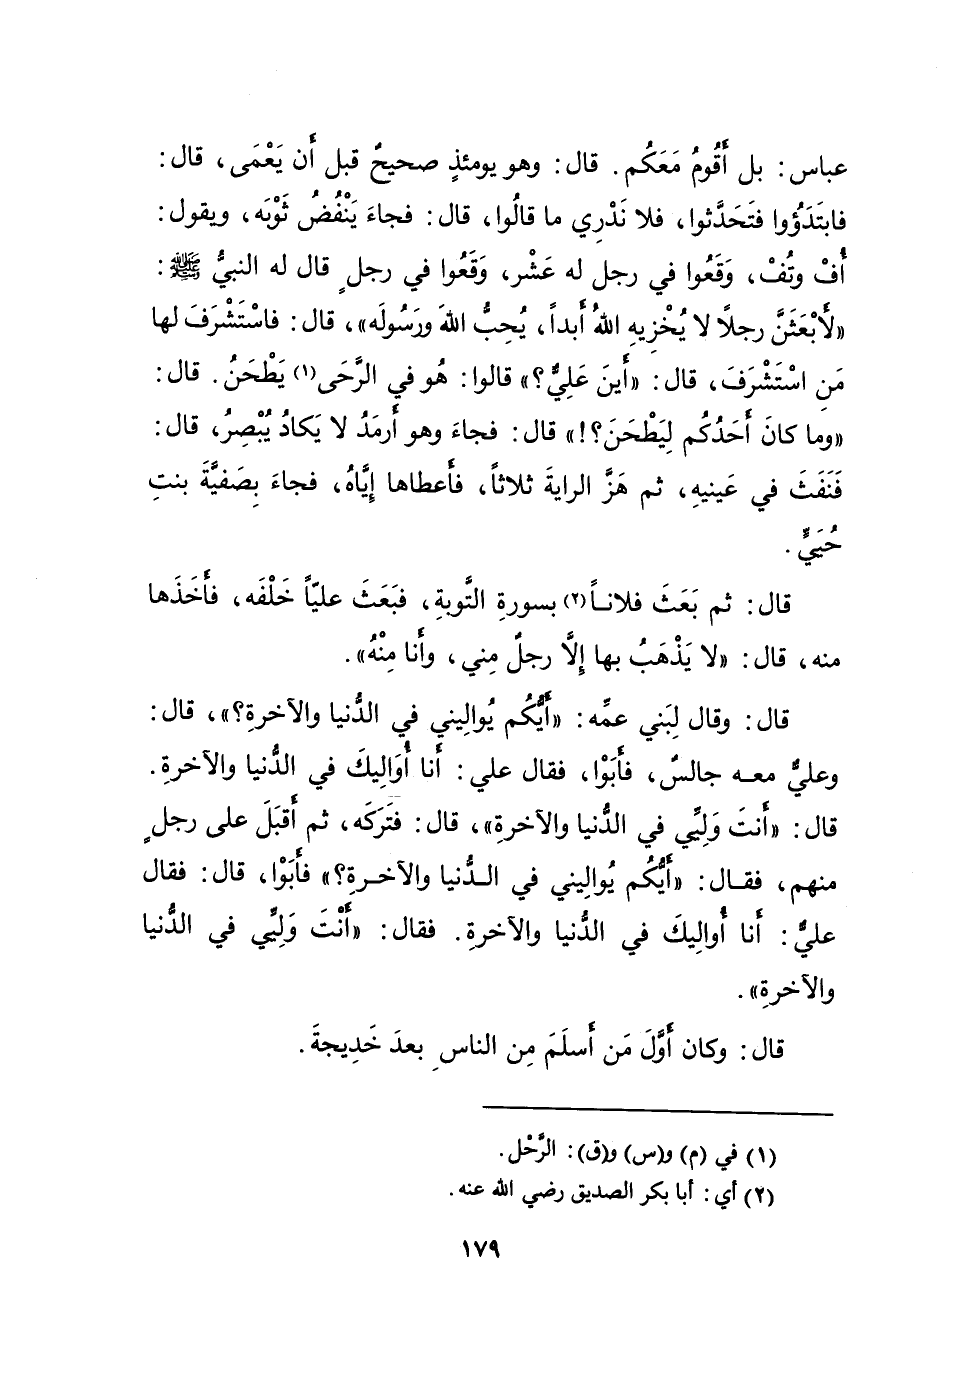 عباس: بل أَقُومُ مَعَكُم. قال: وهو يومئذٍ صحيحٌ قبل أَن يَعْمَى، قال:
فابتَدَؤُوا فتَحَدَّثوا، فلا نَدْرِي ما قالُوا، قال: فجاءَ يَنْفُضُ ثَوْبَه، ويقول:
أُفْ وتُفْ، وَقَعُوا في رجل له عَشْر، وَقَعُوا في رجلٍ قال له النبيُّ ﷺ:
«لَأَبْعَثَنَّ رجلًا لا يُخْزِيهِ اللهُ أَبداً، يُحِبُّ اللهَ ورَسُولَه»، قال: فاسْتَشْرَفَ لها
مَنِ اسْتَشْرَفَ، قال: «أَينَ عَلِيٌّ؟» قالوا: هُو في الرَّحَى(١) يَطْحَنُ. قال:
«وما كانَ أَحَدُكُم لِيَطْحَنَ؟!» قال: فجاءَ وهو أَرمَدُ لا يَكادُ يُبْصِرُ، قال:
فَنَفَثَ في عَينيهِ، ثم هَزَّ الرايةَ ثلاثاً، فأَعطاها إِيَّاهُ، فجاءَ بِصَفيَّةَ بنتِ
حُيَيٍّ.
قال: ثم بَعَثَ فلاناً(٢) بسورةِ التَّوبةِ، فبَعَثَ عليّاً خَلْفَه، فأَخَذَها
منه، قال: «لا يَذْهَبُ بها إِلَّا رجلٌ مِني، وأَنا مِنْهُ».
قال: وقال لِبَني عمِّه: «أَيُّكُم يُوالِيني في الدُّنيا والآخرةِ؟»، قال:
وعليٌّ معه جالسٌ، فأَبَوْا، فقال علي: أَنا أُوَالِيكَ في الدُّنيا والآخرةِ.
قال: «أَنتَ وَلِيِّي في الدُّنيا والآخرةِ»، قال: فتَرَكَه، ثم أَقبَلَ على رجلٍ
منهم، فقال: «أَيُّكُم يُوالِيني في الدُّنيا والآخرةِ؟» فأَبَوْا، قال: فقال
عليٌّ: أَنا أُوالِيكَ في الدُّنيا والآخرةِ. فقال: «أَنْتَ وَلِيِّي في الدُّنيا
والآخرةِ».
قال: وكان أَوَّلَ مَن أَسلَمَ مِن الناسِ بعدَ خَدِيجةَ.
(١) في (م) و(س) و(ق): الرَّحْل.
(٢) أي: أبا بكر الصديق رضي الله عنه.
١٧٩